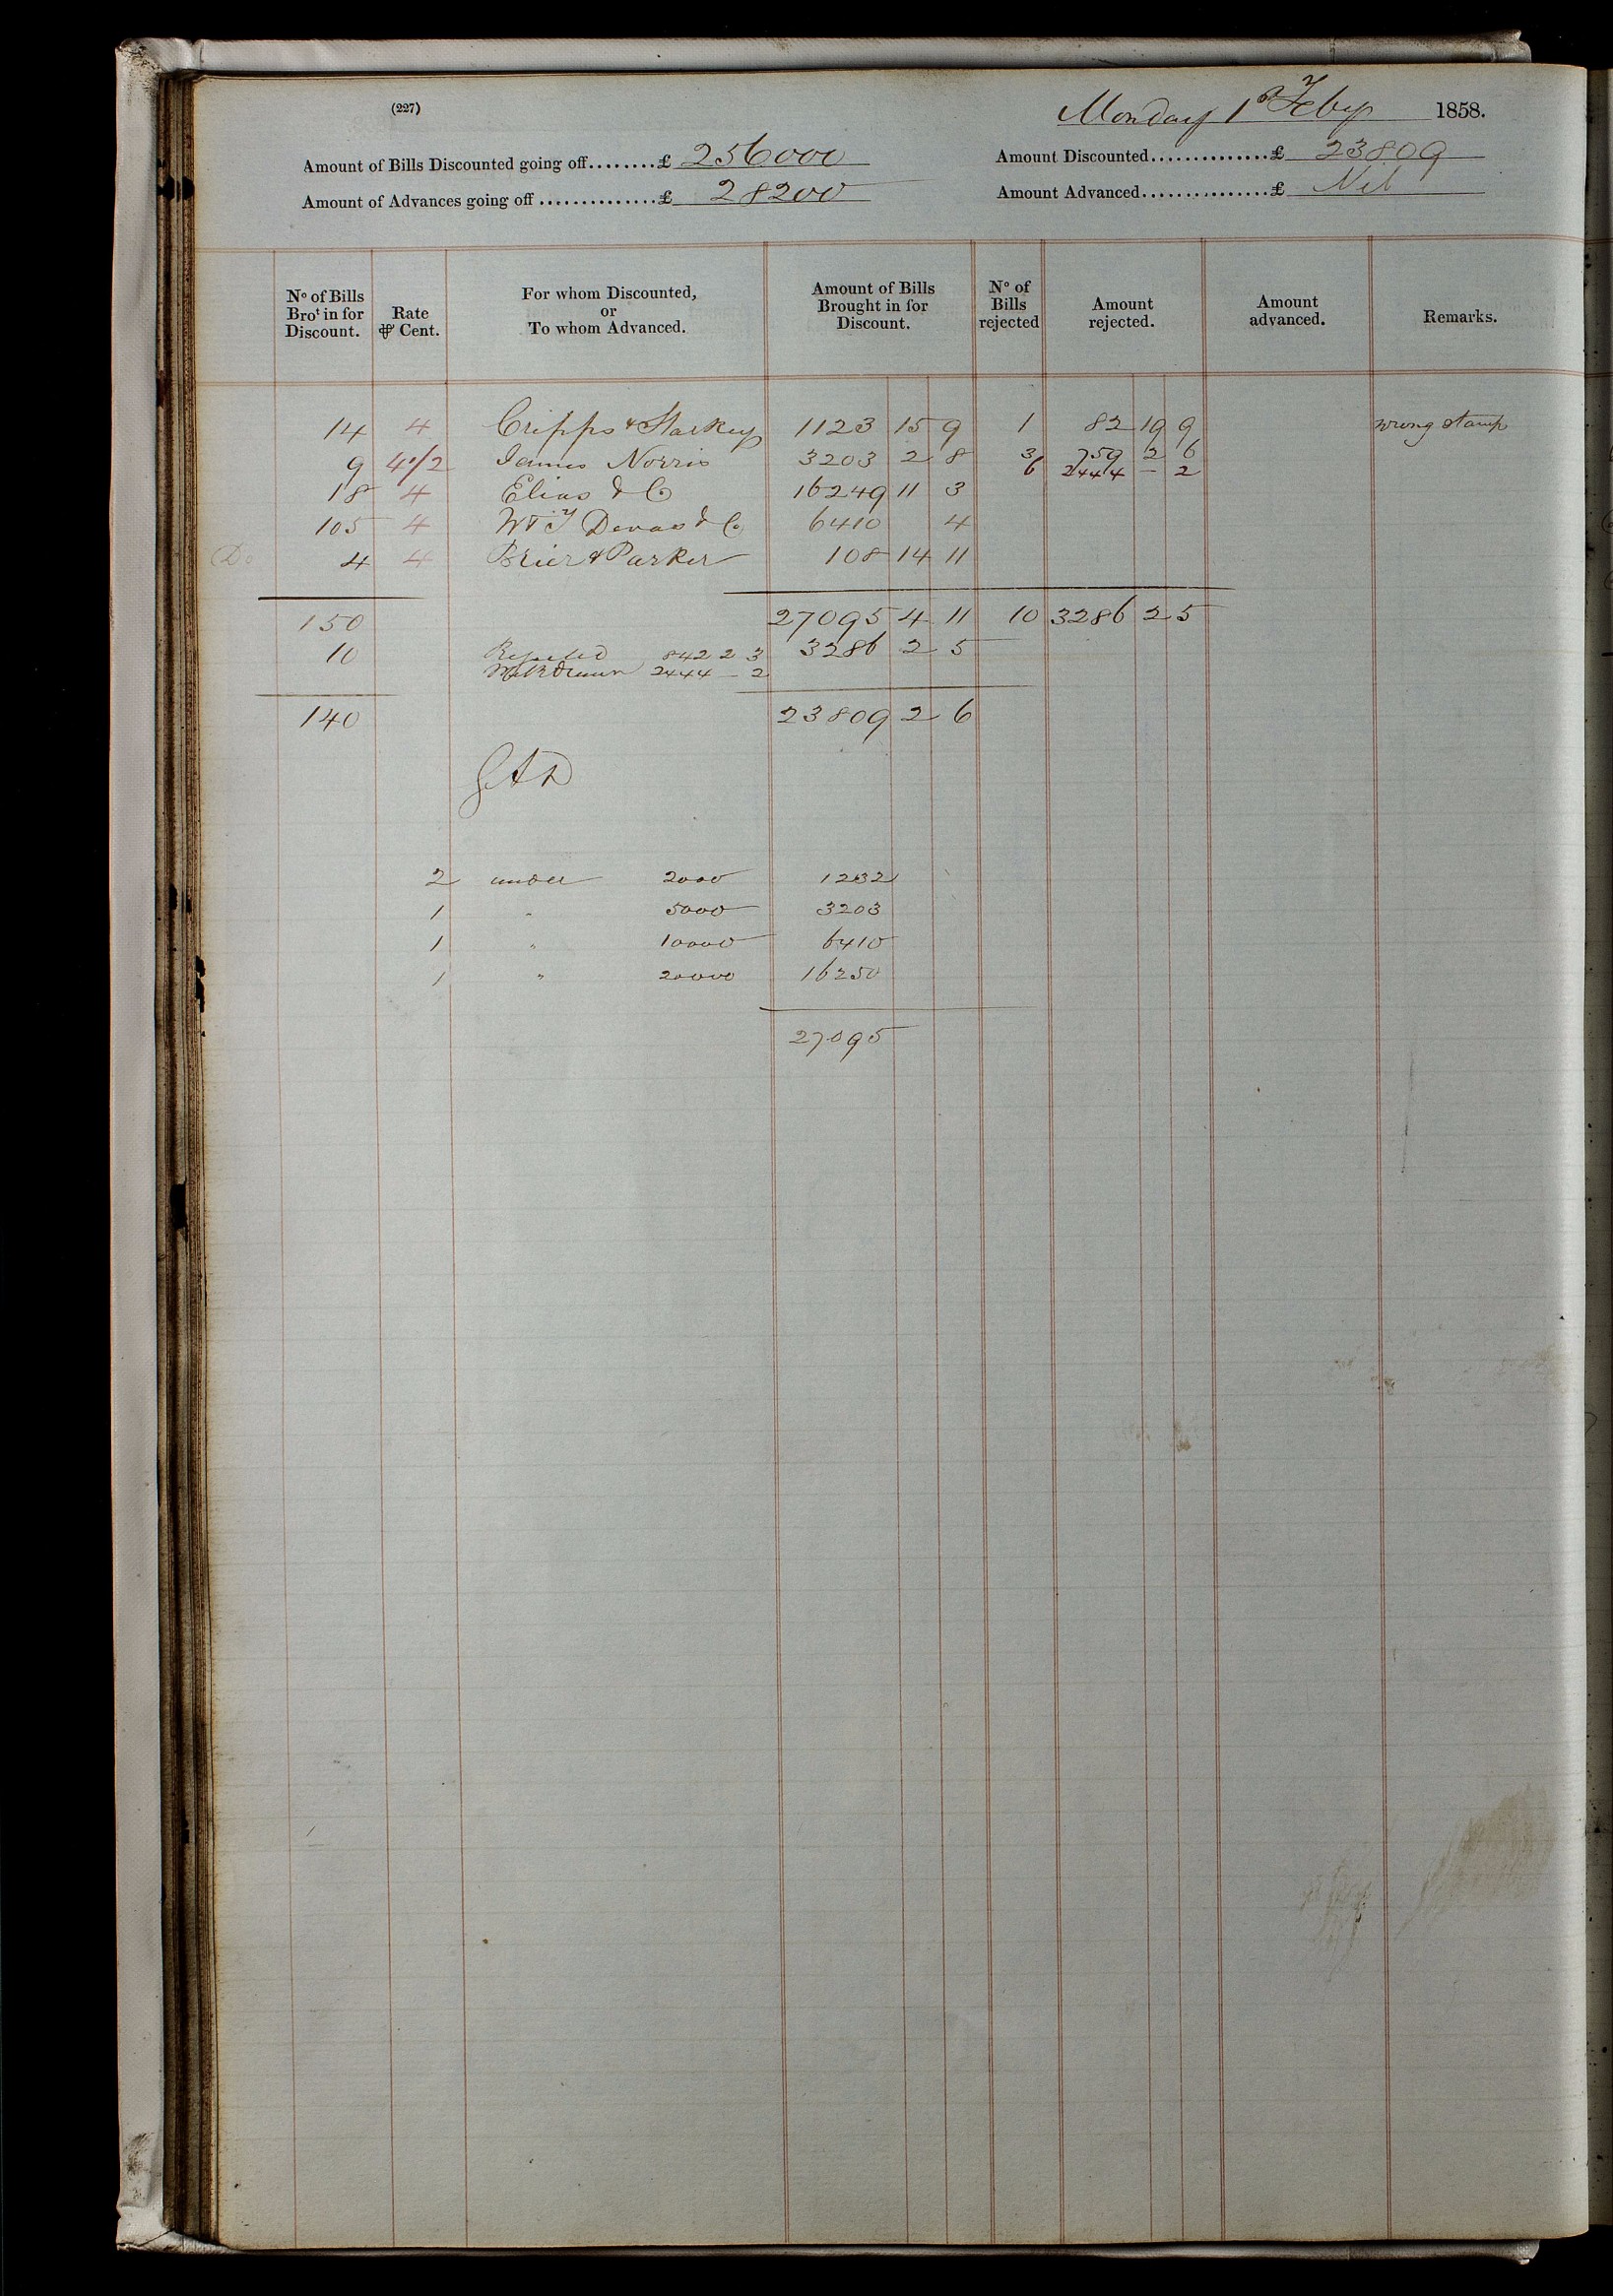 (227)
Monday 1st Feby 1858.
Amount of Bills Discounted going off........£ 256000
Amount Discounted..............£ 23809
Amount of Advances going off..............£ 28200
Amount Advanced...............£ Nil
No of Bills Brot in for Discount.
Rate ⅌ Cent.
For whom Discounted, or To whom Advanced.
Amount of Bills Brought in for Discount.
No of Bills rejected
Amount rejected.
Amount advanced.
Remarks.
14 4 Cripps & Starkey 1123 15 9 1 82 19 9 wrong stamp
9 4 1/2 James Norris 3203 2 8 3 759 2 6
6 2444 - 2
18 4 Elias & Co 16249 11 3
105 4 W & T Devas & Co 6410 4
Do 4 4 Brier & Parker 108 14 11
150 27095 4 11 10 3286 2 5
10 Rejected 842 2 3 3286 2 5
Withdrawn 2444 - 2
140 23809 2 6
2 under 2000 1232
1 " 5000 3203
1 " 10000 6410
1 " 20000 16250
27095